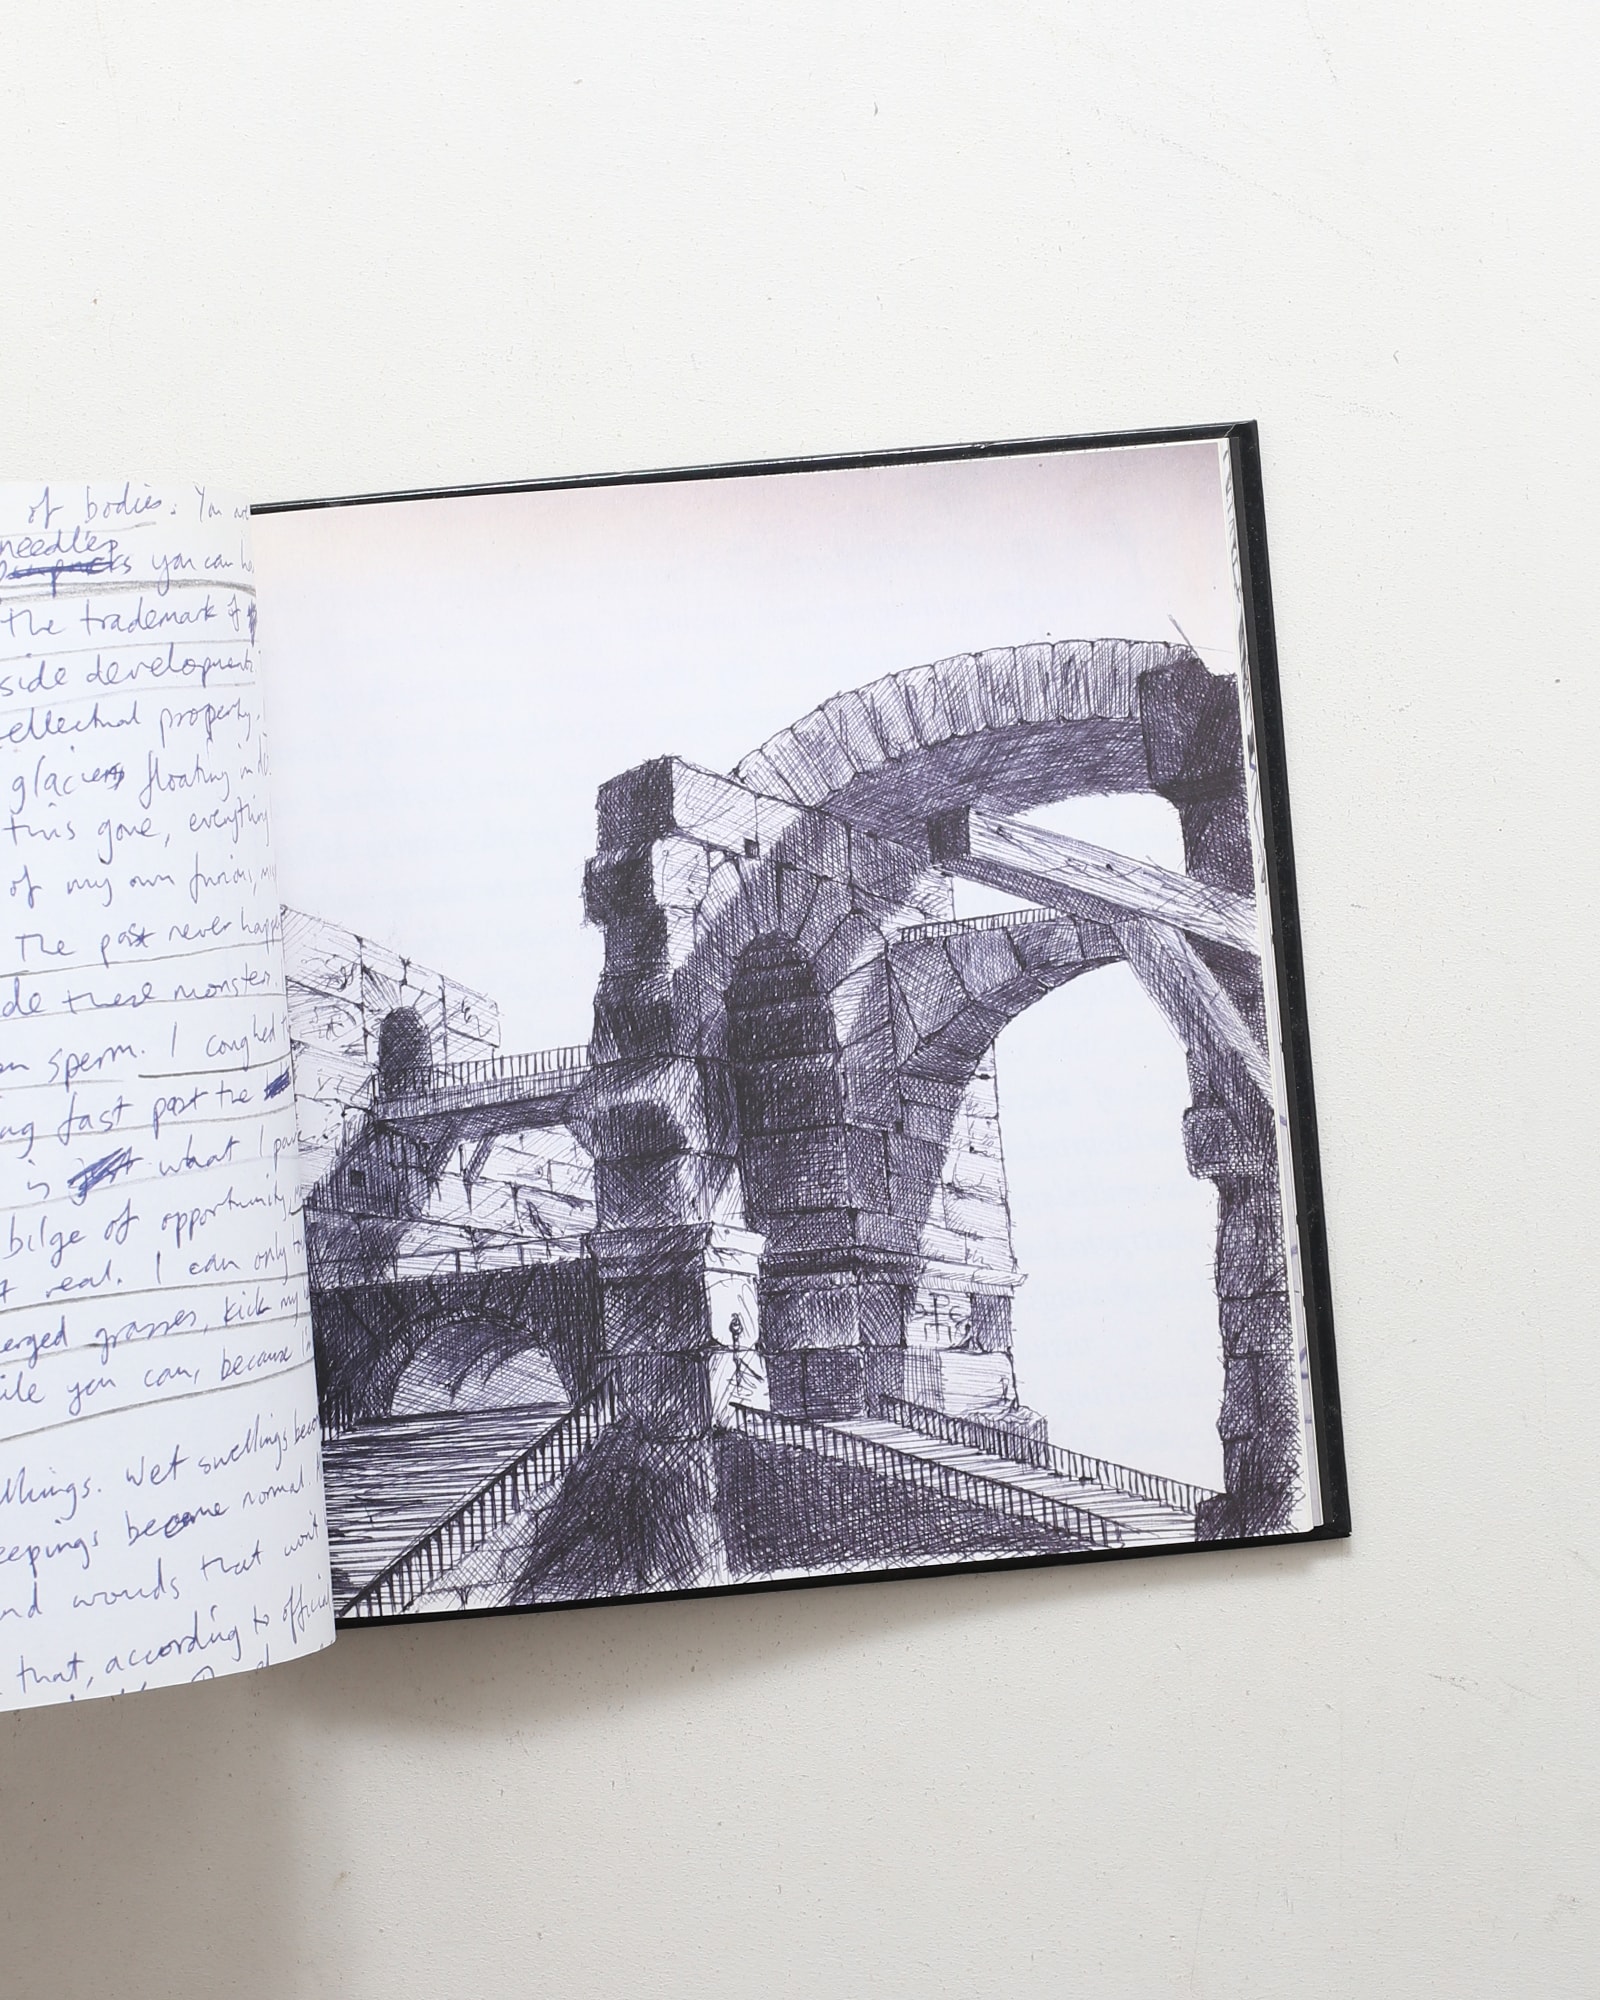 of bodies. You are
needles
you can
the trademark of
side developments
ellectual property.
glaciers floating in
this gone, everything
of my own furious,
The past never
de these monster.
sperm. I coughed
ng fast past the
is just what I
bilge of opportunity,
t real. I can only
erged grasses, kick my
ile you can, because
llings. Wet swellings
eepings become normal.
nd words that won't
that, according to